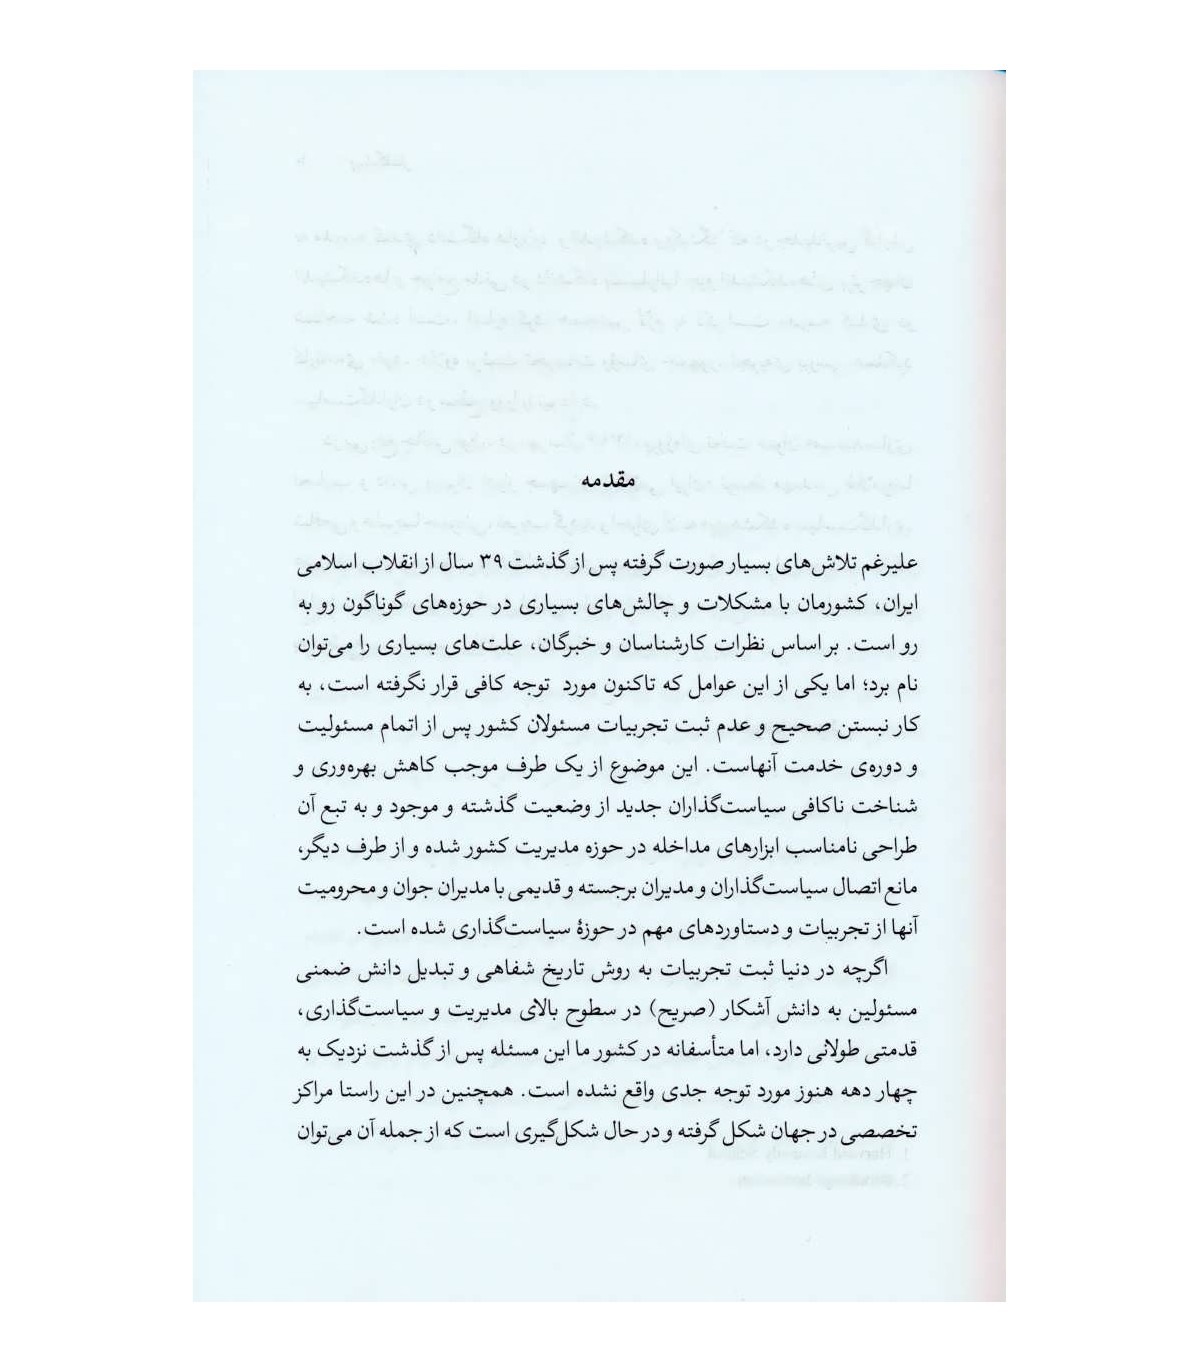 مقدمه
علیرغم تلاش‌های بسیار صورت گرفته پس از گذشت ۳۹ سال از انقلاب اسلامی
ایران، کشورمان با مشکلات و چالش‌های بسیاری در حوزه‌های گوناگون رو به
رو است. بر اساس نظرات کارشناسان و خبرگان، علت‌های بسیاری را می‌توان
نام برد؛ اما یکی از این عوامل که تاکنون مورد توجه کافی قرار نگرفته است، به
کار نبستن صحیح و عدم ثبت تجربیات مسئولان کشور پس از اتمام مسئولیت
و دوره‌ی خدمت آنهاست. این موضوع از یک طرف موجب کاهش بهره‌وری و
شناخت ناکافی سیاست‌گذاران جدید از وضعیت گذشته و موجود و به تبع آن
طراحی نامناسب ابزارهای مداخله در حوزه مدیریت کشور شده و از طرف دیگر،
مانع اتصال سیاست‌گذاران و مدیران برجسته و قدیمی با مدیران جوان و محرومیت
آنها از تجربیات و دستاوردهای مهم در حوزهٔ سیاست‌گذاری شده است.
اگرچه در دنیا ثبت تجربیات به روش تاریخ شفاهی و تبدیل دانش ضمنی
مسئولین به دانش آشکار (صریح) در سطوح بالای مدیریت و سیاست‌گذاری،
قدمتی طولانی دارد، اما متأسفانه در کشور ما این مسئله پس از گذشت نزدیک به
چهار دهه هنوز مورد توجه جدی واقع نشده است. همچنین در این راستا مراکز
تخصصی در جهان شکل گرفته و در حال شکل‌گیری است که از جمله آن می‌توان